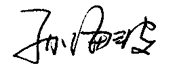 孙海波